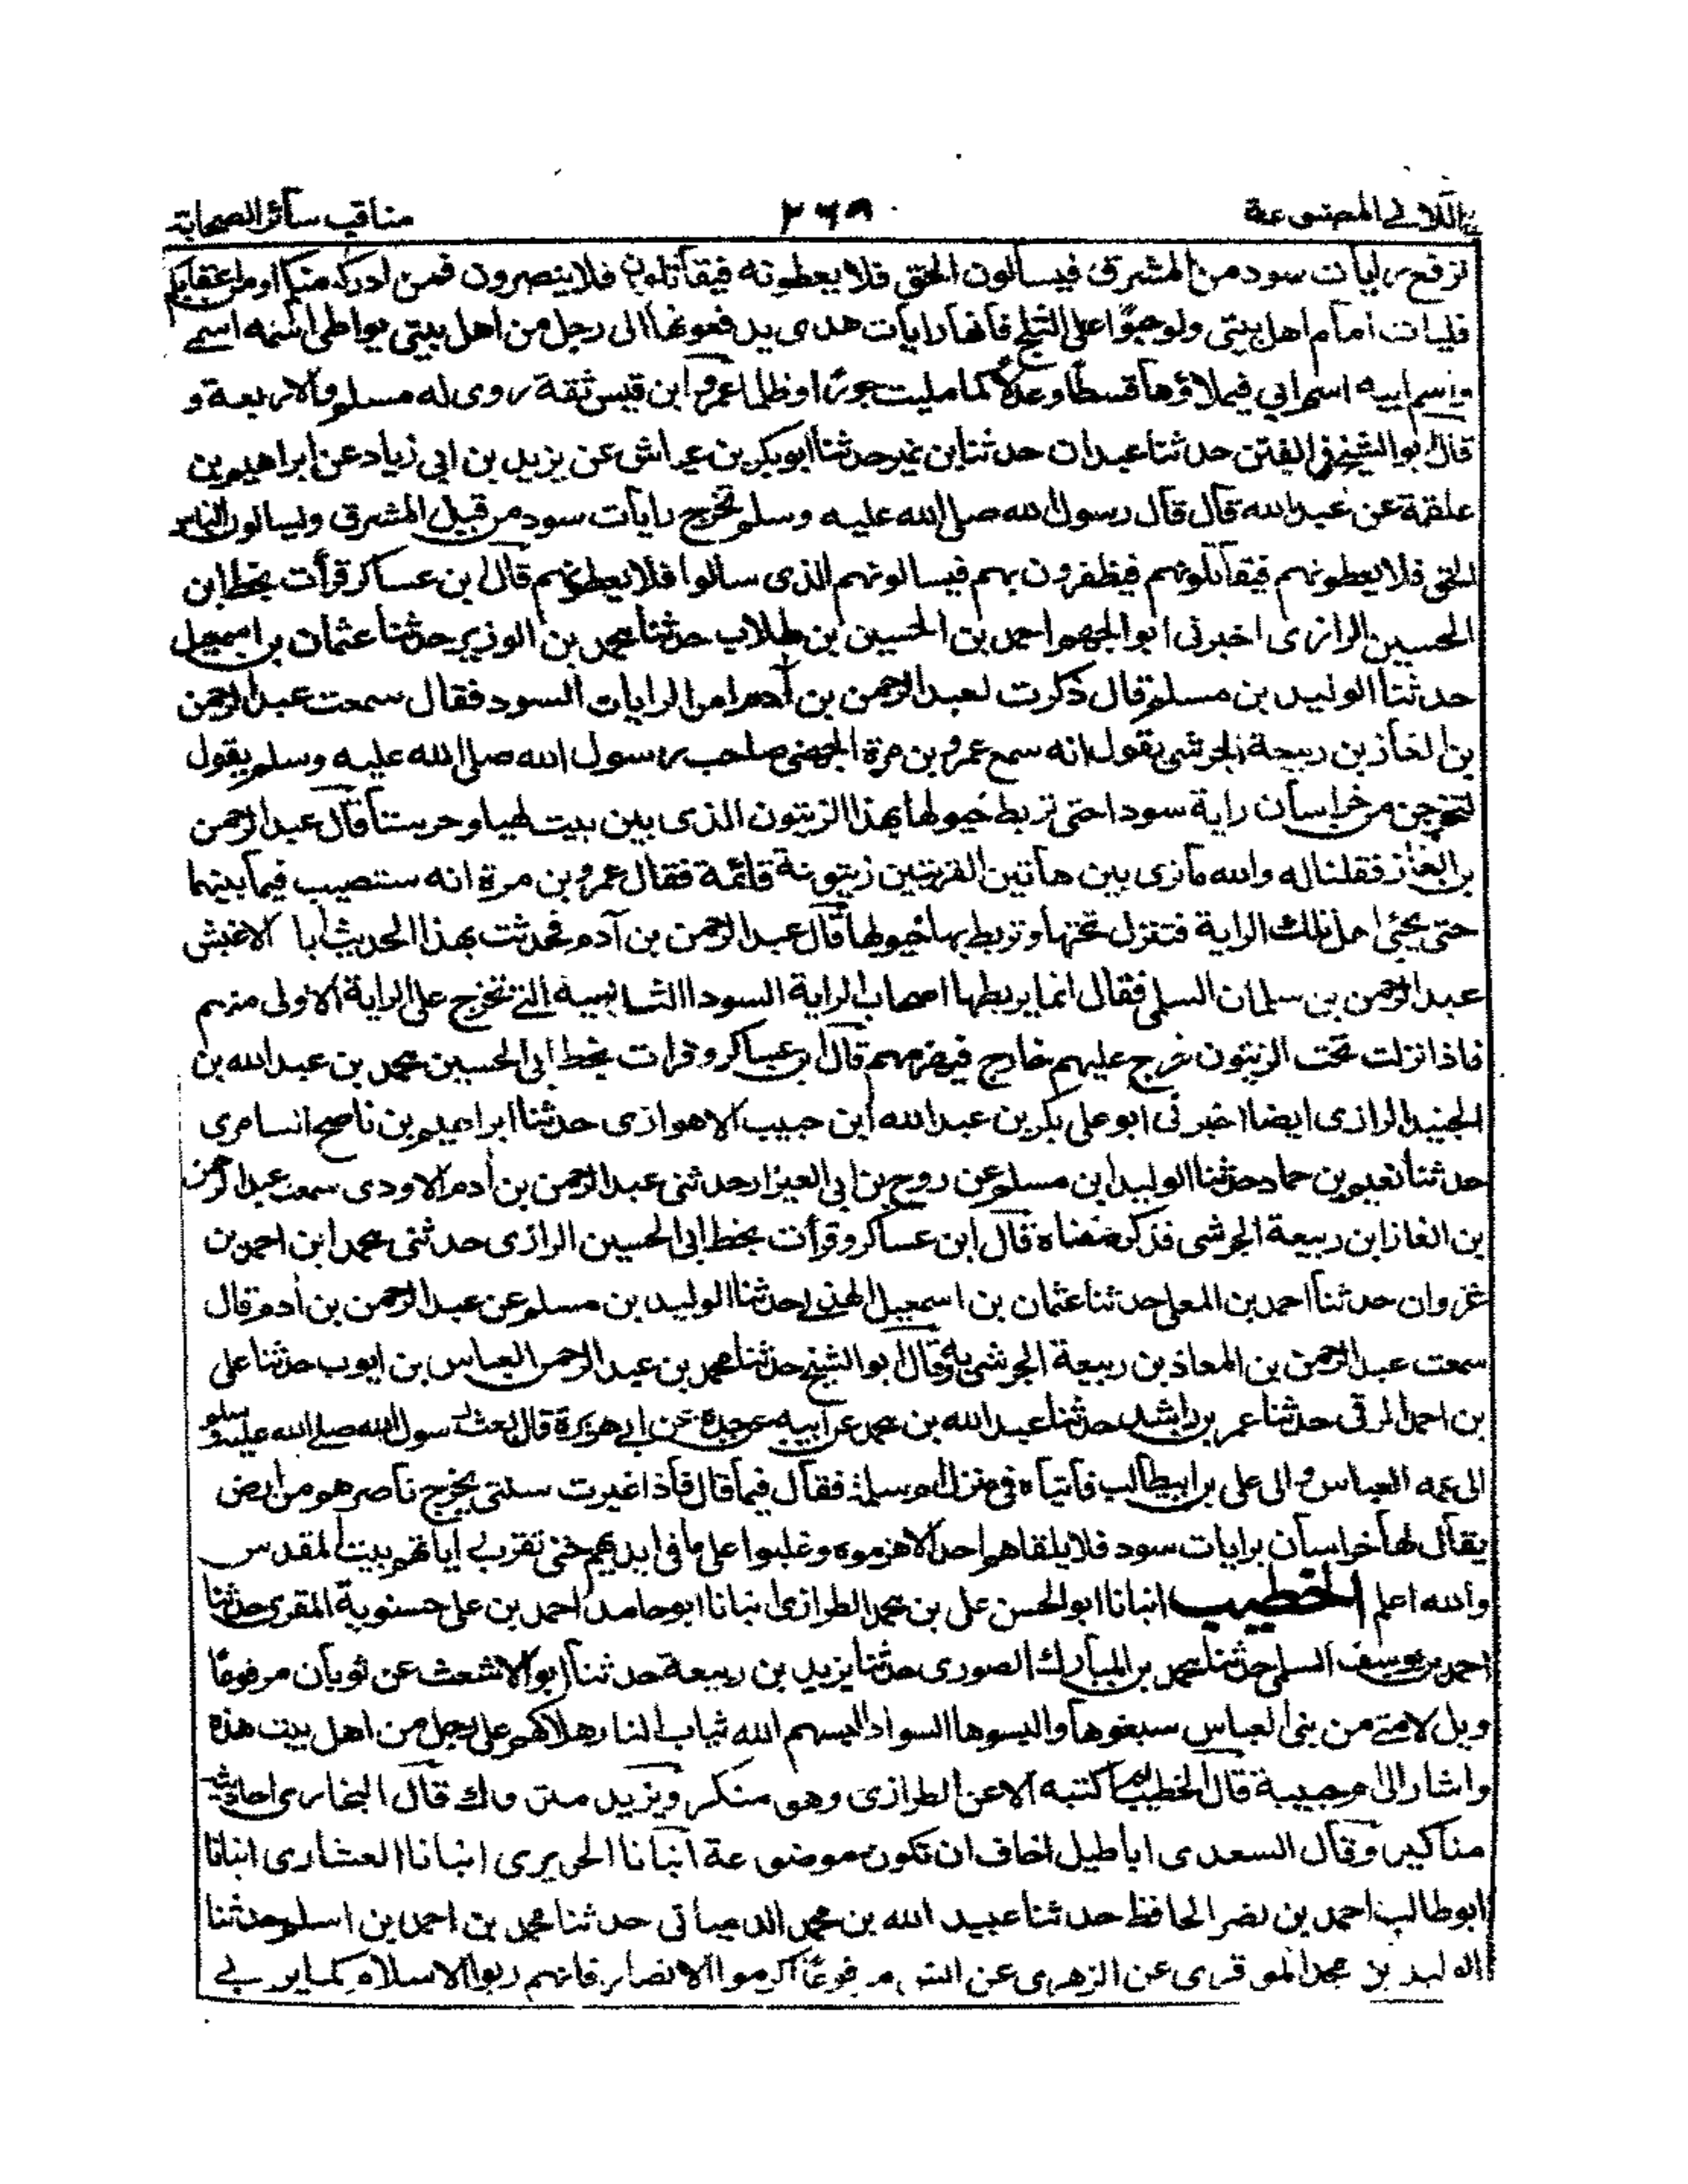 اللآلي المصنوعة ٢٦٩ مناقب سائر الصحابة
ترفع رايات سود من المشرق فيسألون الحق فلا يعطونه فيقاتلون فلا ينصرون فمن ادركه منكم او من اعقابكم
فليات امام اهل بيتي ولو حبوًا على الثلج فانها رايات هدى يدفعونها الى رجل من اهل بيتي يواطى اسمه اسمي
واسم ابيه اسم ابي فيملاؤها قسطا وعدلا كما مليت جورًا وظلما عمرو ابن قيس ثقة روى له مسلم والاربعة و
قال ابو الشيخ في الفتن حدثنا عبدان حدثنا ابن نمير حدثنا ابو بكر بن عياش عن يزيد بن ابي زياد عن ابراهيم بن
علقمة عن عبد الله قال قال رسول الله صلى الله عليه وسلم تخرج رايات سود من قبل المشرق ويسالون الناس
الحق فلا يعطونهم فيقاتلونهم فيظفرون بهم فيسالونهم الذى سالوا فلا يعطونهم قال ابن عساكر قرأت بخط ابن
الحسين الرازى اخبرنى ابو الجهم احمد بن الحسين بن طلاب حدثنا محمد بن الوزير حدثنا عثمان بن اسمعيل
حدثنا الوليد بن مسلم قال ذكرت لعبد الرحمن بن آدم امر الرايات السود فقال سمعت عبد الرحمن
بن الغاز بن ربيعة الجرشى يقول انه سمع عمرو بن مرة الجهنى صاحب رسول الله صلى الله عليه وسلم يقول
لتخرجن من خراسان راية سودا حتى تربط خيولها بهذا الزيتون الذى بين بيت لهيا وحرستا قال عبد الرحمن
بن الغاز فقلنا له والله ما نرى بين هاتين القريتين زيتونة قائمة فقال عمرو بن مرة انه ستنصب فيما بينهما
حتى يجئ اهل تلك الراية فتنزل تحتها وتربط بها خيولها قال عبد الرحمن بن آدم فحدثت بهذا الحديث ابا الاغبش
عبد الرحمن بن سلمان السلمى فقال انما يربطها اصحاب الراية السودا الثانيه التي تخرج على الراية الاولى منهم
فاذا نزلت تحت الزيتون خرج عليهم خارج فيهزمهم قال ابن عساكر وقرات بخط ابى الحسين محمد بن عبد الله بن
الجنيد الرازى ايضا اخبرنى ابو على بكر بن عبد الله ابن حبيب الاهوازى حدثنا ابراهيم بن ناصح السامرى
حدثنا نعيم بن حماد حدثنا الوليد ابن مسلم عن روح بن ابى العيزار حدثنى عبد الرحمن بن آدم الاودى سمعت عبد الرحمن
بن الغاز ابن ربيعة الجرشى فذكر معناه قال ابن عساكر وقرأت بخط ابى الحسين الرازى حدثنى محمد ابن احمد بن
غزوان حدثنا احمد بن المعلى حدثنا عثمان بن اسمعيل الهذلي حدثنا الوليد بن مسلم عن عبد الرحمن بن آدم قال
سمعت عبد الرحمن بن المعاذ بن ربيعة الجرشى به وقال ابو الشيخ حدثنا محمد بن عبد الرحمن العباس بن ايوب حدثنا على
بن احمد الرقى حدثنا عمر بن راشد حدثنا عبد الله بن محمد عن ابيه عن جده عن ابي هريرة قال بعث رسول الله صلى الله عليه وسلم
الى عمه العباس والى على بن ابيطالب فأتياه فى منزل ام سلمة فقال فيما قال فاذا غيرت سنتى يخرج ناصرهم من ارض
يقال لها خراسان برايات سود فلا يلقاهم احد الا هزموه وغلبوا على ما فى ايديهم حتى تقرب راياتهم بيت المقدس
والله اعلم الخطيب انبانا ابو الحسن على بن محمد الطرازى انبانا ابو حامد احمد بن على حسنوية المقرى حدثنا
احمد بن يوسف السلمى حدثنا محمد بن المبارك الصورى حدثنا يزيد بن ربيعة حدثنا ابو الاشعث عن ثوبان مرفوعًا
ويل لامتي من بنى العباس سبغوها والبسوها السواد البسهم الله ثياب النار هلاكهم على رجل من اهل بيت هذه
واشار الى ام حبيبة قال الخطيب لم اكتبه الا عن الطرازى وهو منكر ويزيد متروك قال البخارى احاديثه
مناكير وقال السعدى اباطيل اخاف ان تكون موضوعة انبانا الحريرى انبانا العشارى انبانا
ابو طالب احمد بن نصر الحافظ حدثنا عبيد الله بن محمد الدمياتى حدثنا محمد بن احمد بن اسلم حدثنا
الوليد بن محمد الموقرى عن الزهرى عن انس مرفوعًا اكرموا الانصار فانهم ربوا الاسلام كما يربي